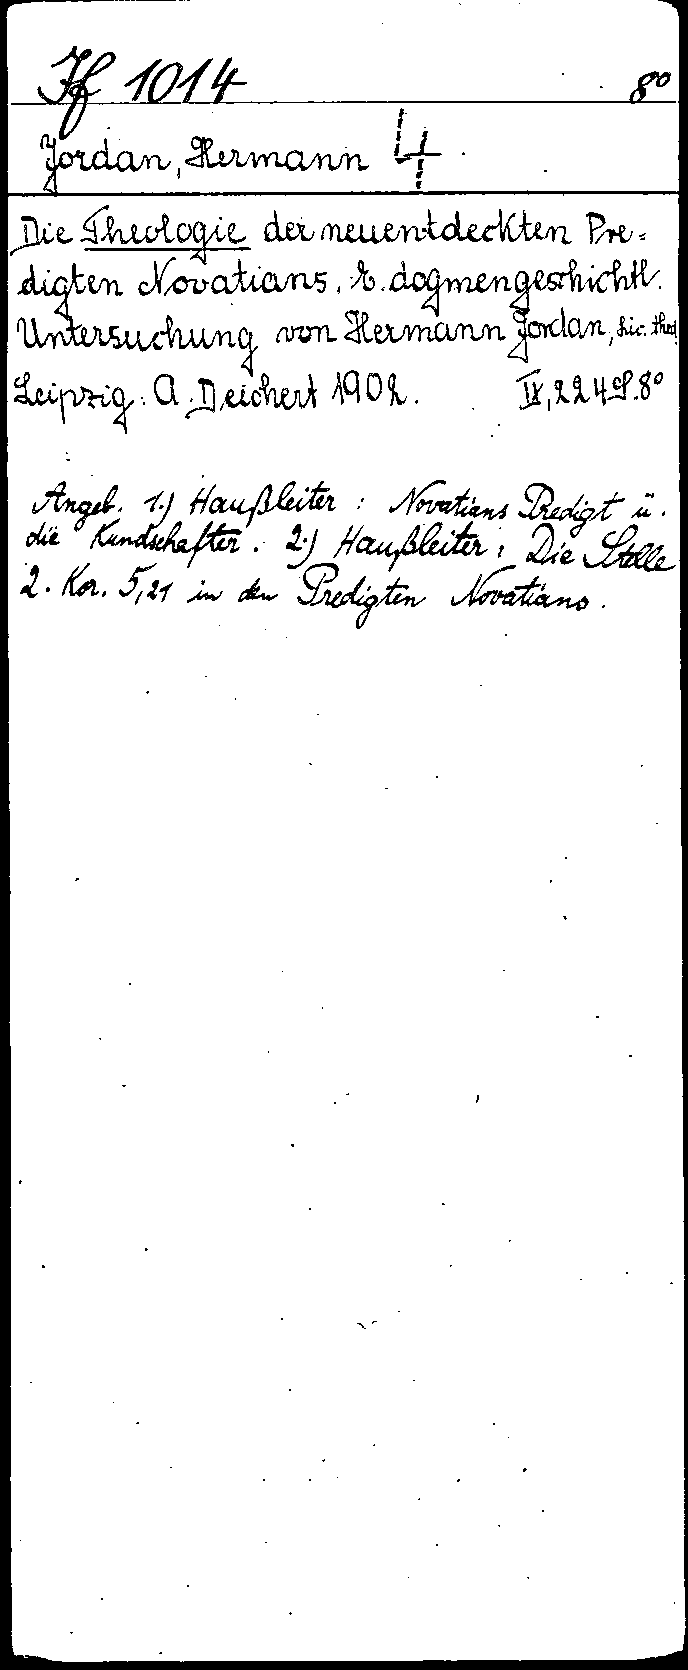 If 1014 8°
Jordan, Hermann 4
Die Theologie der neuentdeckten Pre=
digten Novatians. E. dogmengeschichtl.
Untersuchung von Hermann Jordan, Lic. theol.
Leipzig: A. Deichert 1902. IX, 224 S. 8°
Angeb. 1.) Haußleiter: Novatians Predigt ü.
die Kundschafter. 2.) Haußleiter: Die Stelle
2. Kor. 5,21 in den Predigten Novatians.